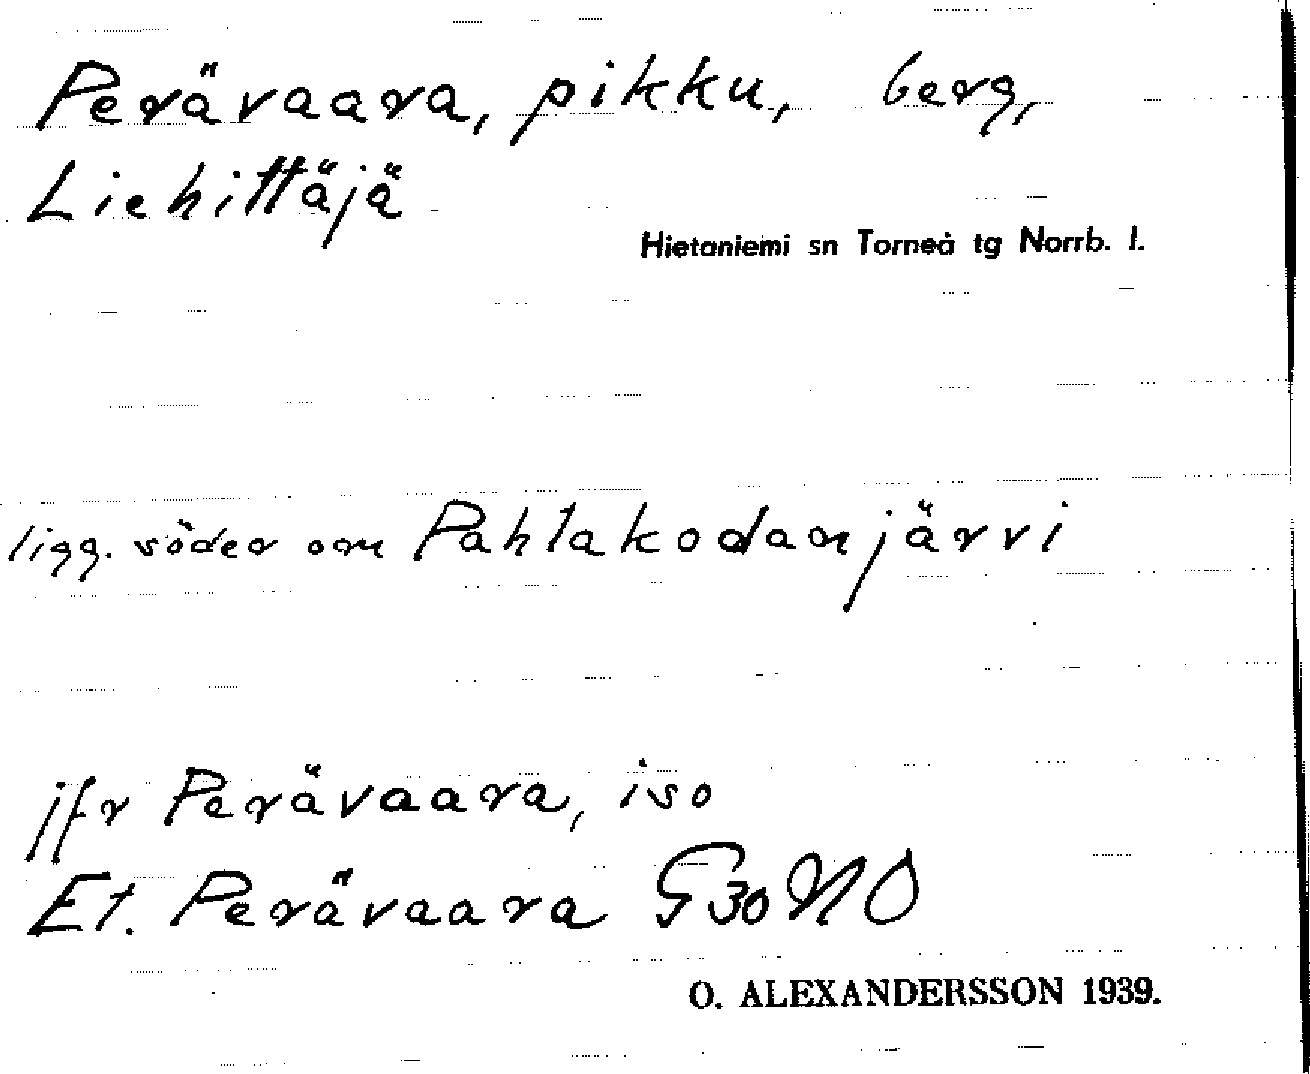 Perävaara, pikku, berg,
Liehittäjä
Hietaniemi sn Torneå tg Norrb. l.
ligg. söder om Pahtakodanjärvi
jfr Perävaara, iso
Et. Perävaara G30NO
O. ALEXANDERSSON 1939.